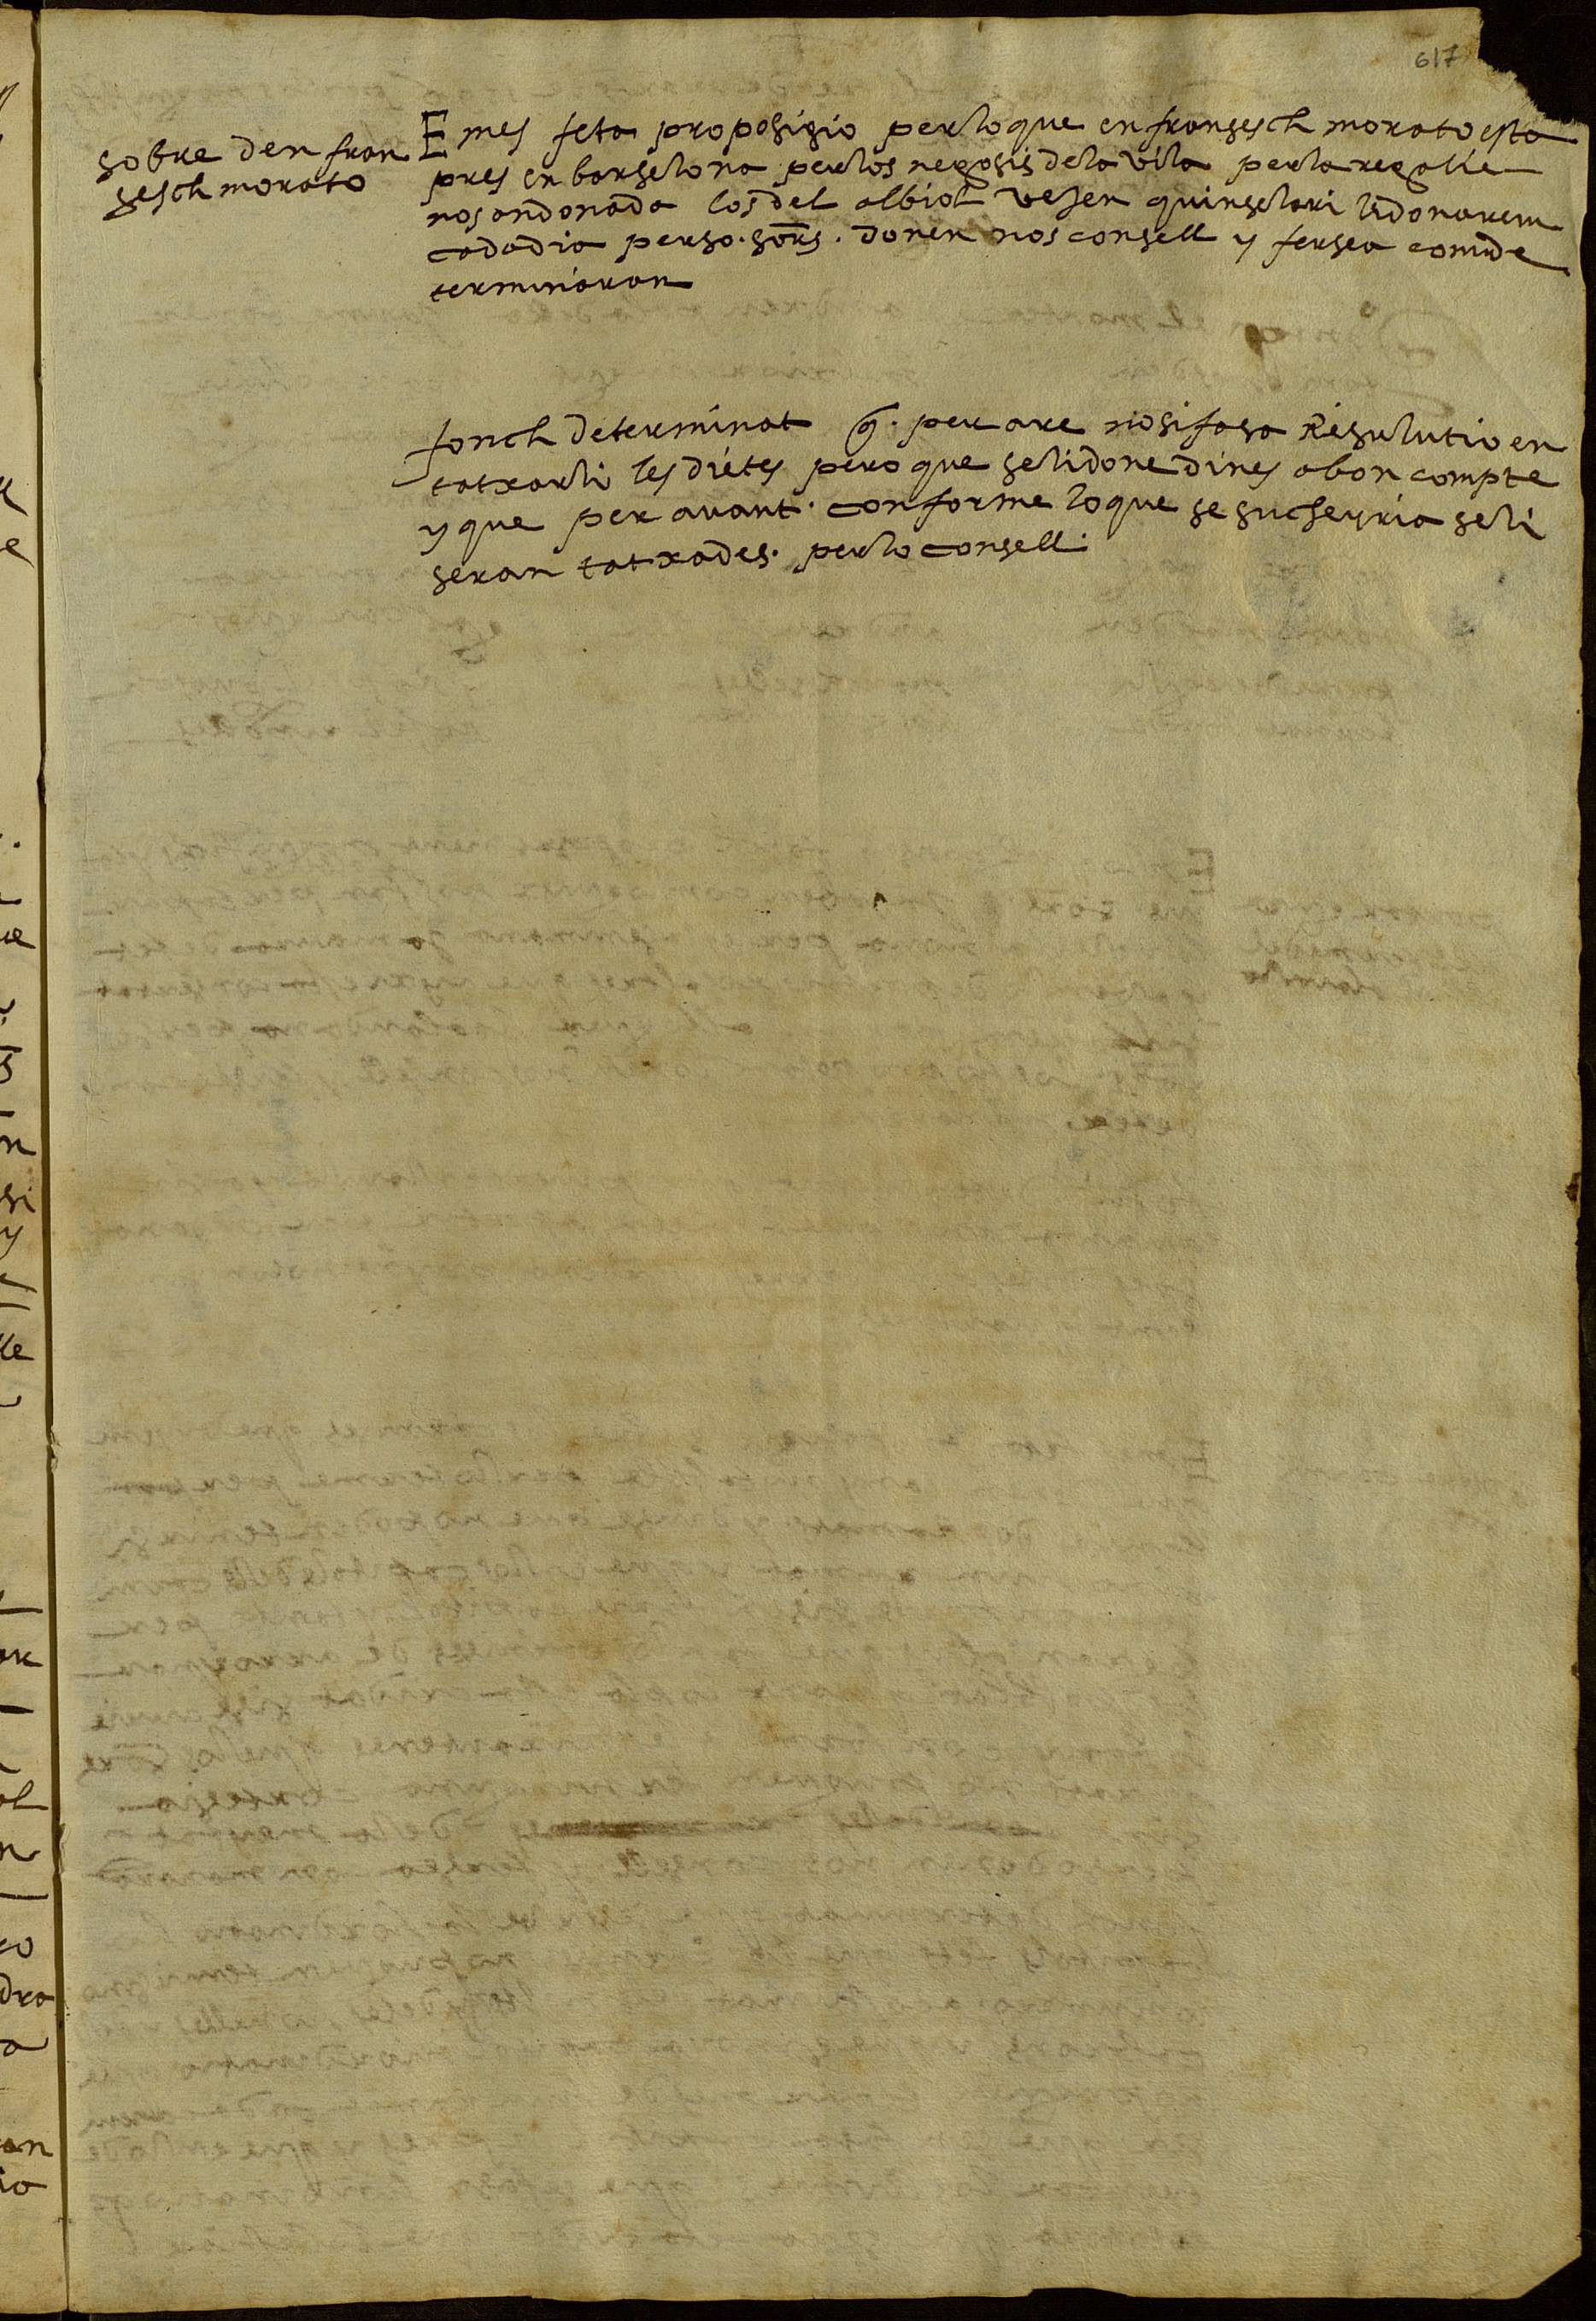 617
sobre den fran
sesch morato
E mes feta proposisio per lo que en fransesch morato esta
pres en barselona per los negosis de la vila per la regalie
nos an donada los del albiol vejen quin selari li donarem
cada dia per so. sors. donen nos consell y fersea com de
terminaran
fonch determinat q. per are nosifasa Resulutio en
tatxarli les dietes pero que se li done dines a bon compte
y que per auant. conforme lo que se sucseyria se li
seran tatxades. per lo consell.